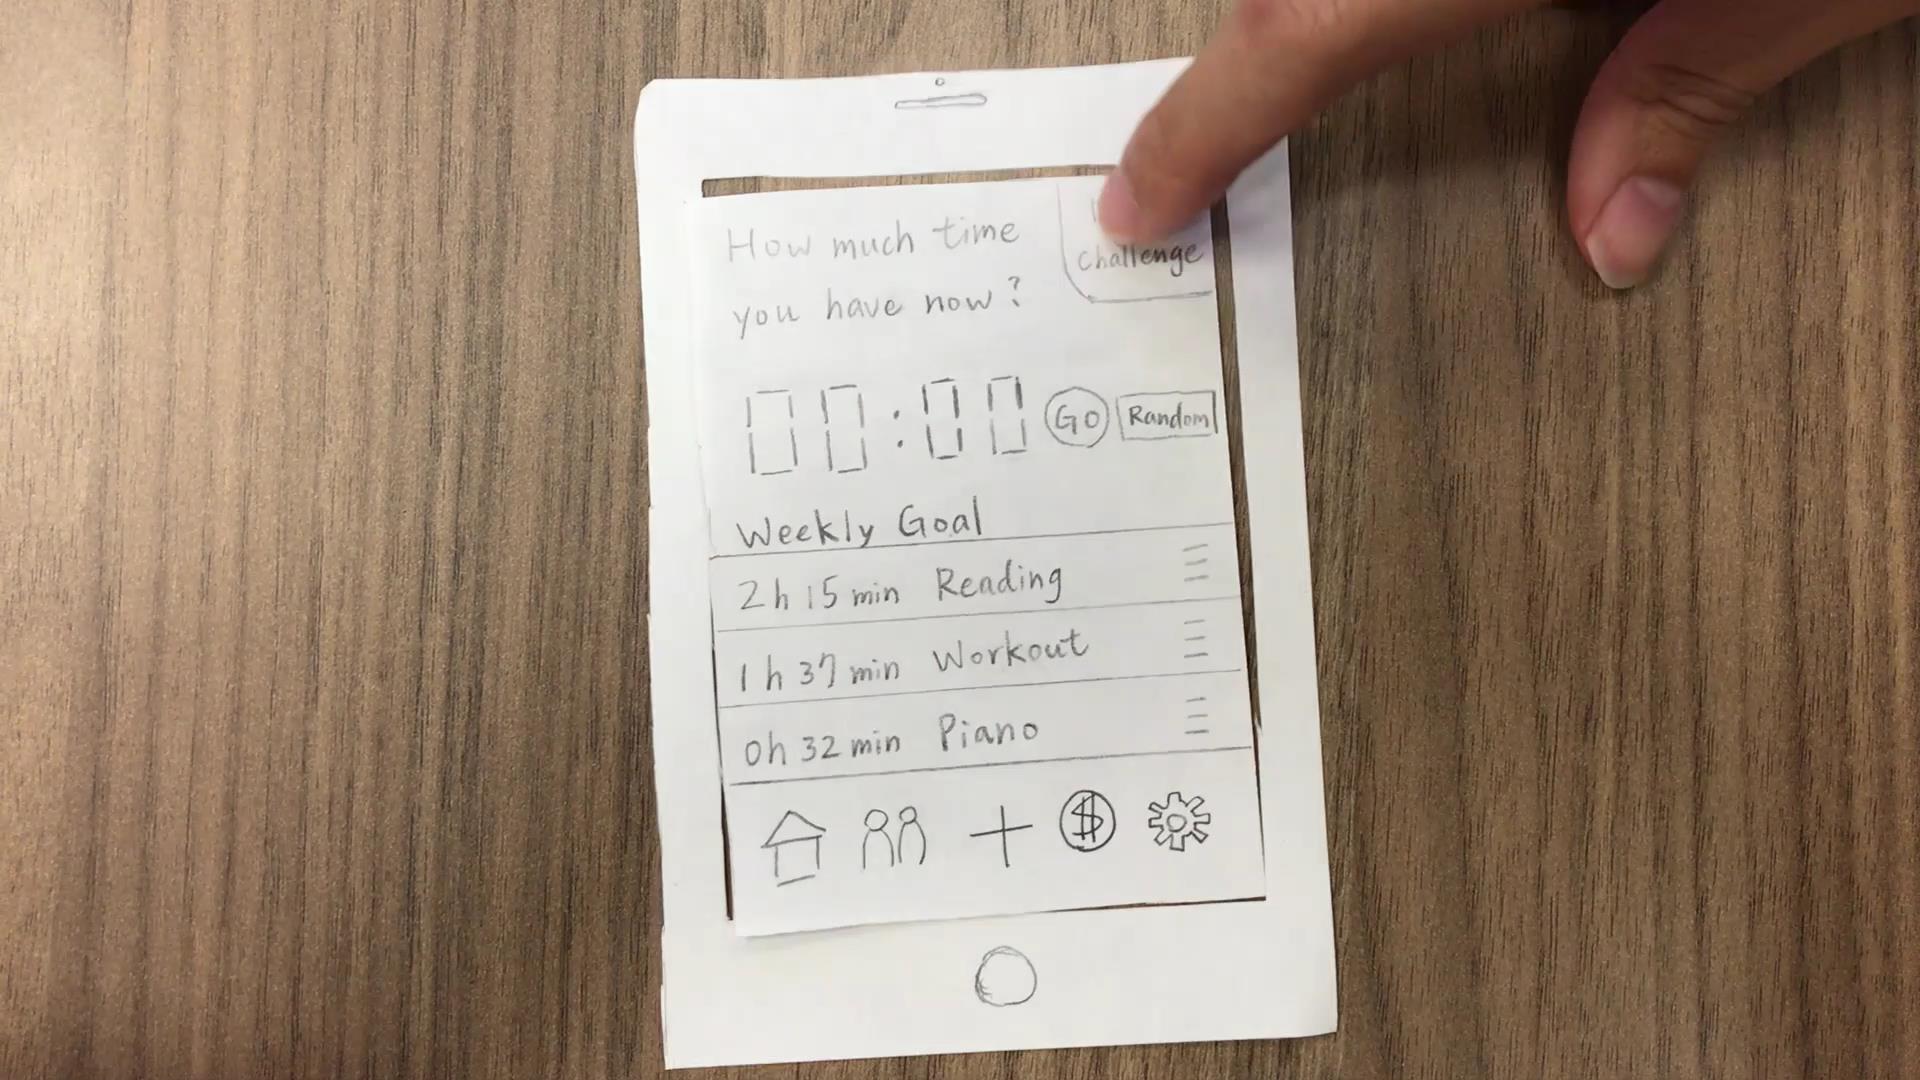 How much time
you have now?
challenge
00:00 GO Random
Weekly Goal
2h 15 min Reading
1h 37 min Workout
0h 32 min Piano
$